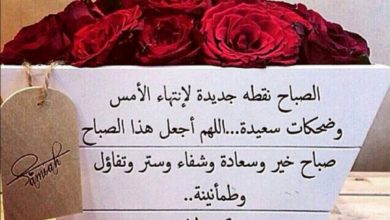 الصباح نقطه جديدة لإنتهاء الأمس
وضحكات سعيدة...اللهم أجعل هذا الصباح
صباح خير وسعادة وشفاء وستر وتفاؤل
وطمأنينة..